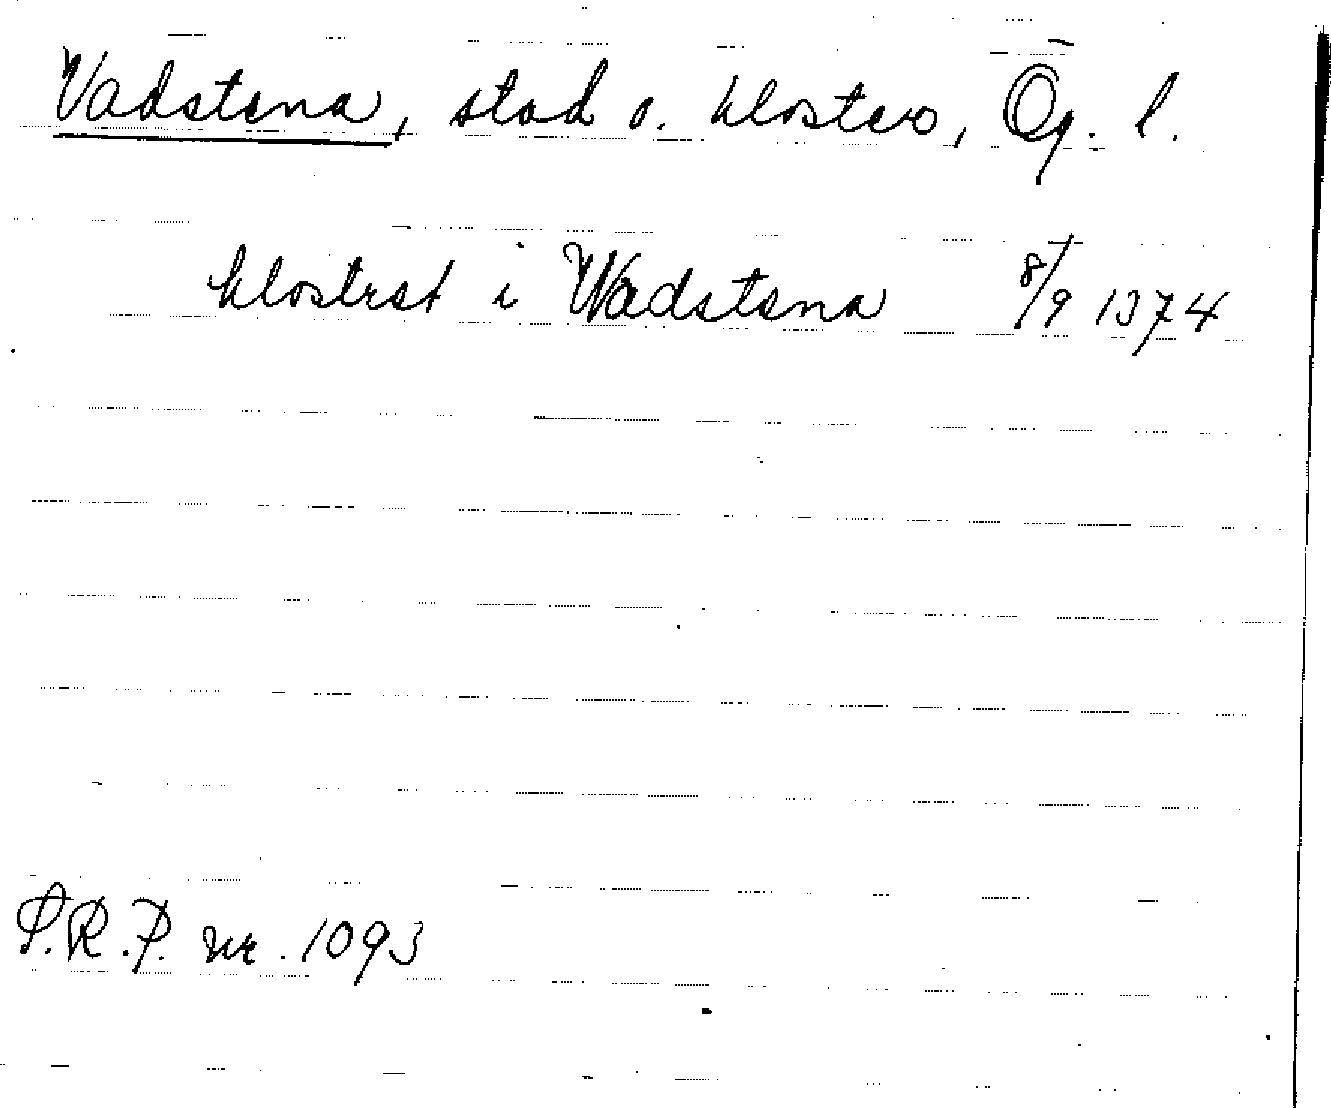 Vadstena, stad o. kloster, Ög. l.
klostret i Wadstena 8/9 1374
P.R.P. nr. 1093